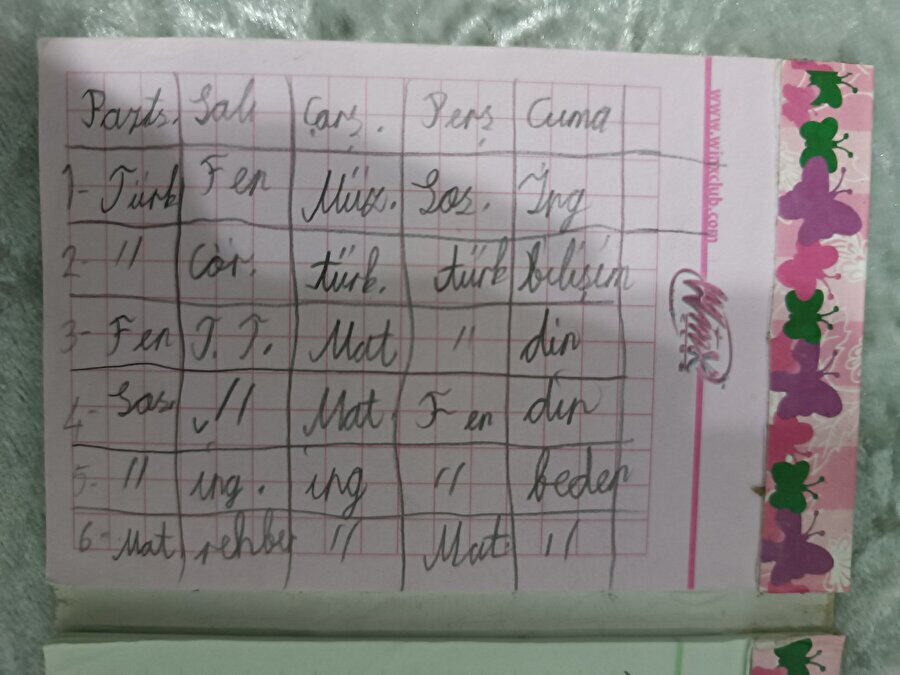 Pazts. Salı Çarş. Perş Cuma
1- Türk Fen Müz. Sos. İng
2- " Cör. türk. türk bilişim
3- Fen T. T. Mat " din
4- Sos. " Mat Fen din
5- " ing. ing " beden
6- Mat rehber " Mat "
www.winxclub.com
Winx
CLUB